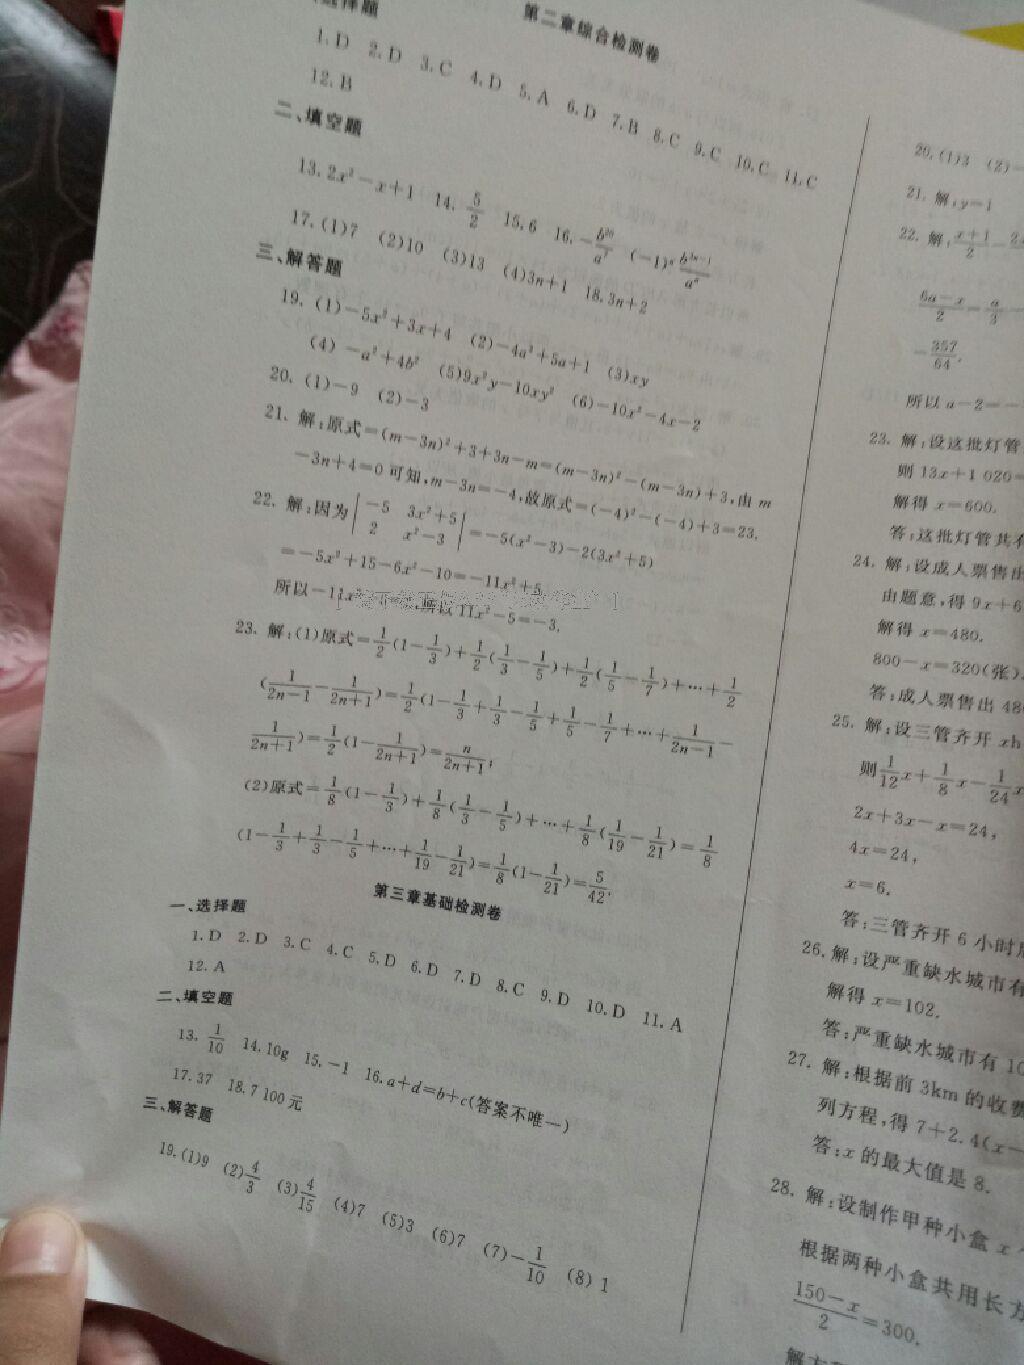 选择题
第二章综合检测卷
1.D 2.D 3.C 4.D 5.A 6.D 7.B 8.C 9.C 10.C 11.C
12.B
二、填空题
13.2x²-x+1 14.5/2 15.6 16.-b²⁰/a⁷ (-1)ⁿb³ⁿ⁻¹/aⁿ
17.(1)7 (2)10 (3)13 (4)3n+1 18.3n+2
三、解答题
19.(1)-5x²+3x+4 (2)-4a³+5a+1 (3)xy
(4)-a²+4b² (5)9x²y-10xy² (6)-10x²-4x-2
20.(1)-9 (2)-3
21.解:原式=(m-3n)²+3+3n-m=(m-3n)²-(m-3n)+3,由m
-3n+4=0可知,m-3n=-4,故原式=(-4)²-(-4)+3=23.
22.解:因为|-5 3x²+5|
|2 x²-3|=-5(x²-3)-2(3x²+5)
=-5x²+15-6x²-10=-11x²+5,
所以-11x² 所以11x²-5=-3.
23.解:(1)原式=1/2(1-1/3)+1/2(1/3-1/5)+1/2(1/5-1/7)+…+1/2
(1/2n-1-1/2n+1)=1/2(1-1/3+1/3-1/5+1/5-1/7+…+1/2n-1-
1/2n+1)=1/2(1-1/2n+1)=n/2n+1;
(2)原式=1/8(1-1/3)+1/8(1/3-1/5)+…+1/8(1/19-1/21)=1/8
(1-1/3+1/3-1/5+…+1/19-1/21)=1/8(1-1/21)=5/42.
第三章基础检测卷
一、选择题
1.D 2.D 3.C 4.C 5.D 6.D 7.D 8.C 9.D 10.D 11.A
12.A
二、填空题
13.1/10 14.10g 15.-1 16.a+d=b+c(答案不唯一)
17.37 18.7 100元
三、解答题
19.(1)9 (2)4/3 (3)4/15 (4)7 (5)3 (6)7 (7)-1/10 (8)1
20.(1)3 (2)-
21.解:y=1
22.解:x+1/2-
6a-x/2=a/3-
-357/64.
所以a-2=-
23.解:设这批灯管
则13x+1 020=
解得x=600.
答:这批灯管共有
24.解:设成人票售出
由题意,得9x+6
解得x=480.
800-x=320(张).
答:成人票售出48
25.解:设三管齐开xh
则1/12x+1/8x-1/24x
2x+3x-x=24,
4x=24,
x=6.
答:三管齐开6小时后
26.解:设严重缺水城市有
解得x=102.
答:严重缺水城市有10
27.解:根据前3km的收费
列方程,得7+2.4(x-
答:x的最大值是8.
28.解:设制作甲种小盒x个
根据两种小盒共用长方
150-x/2=300.